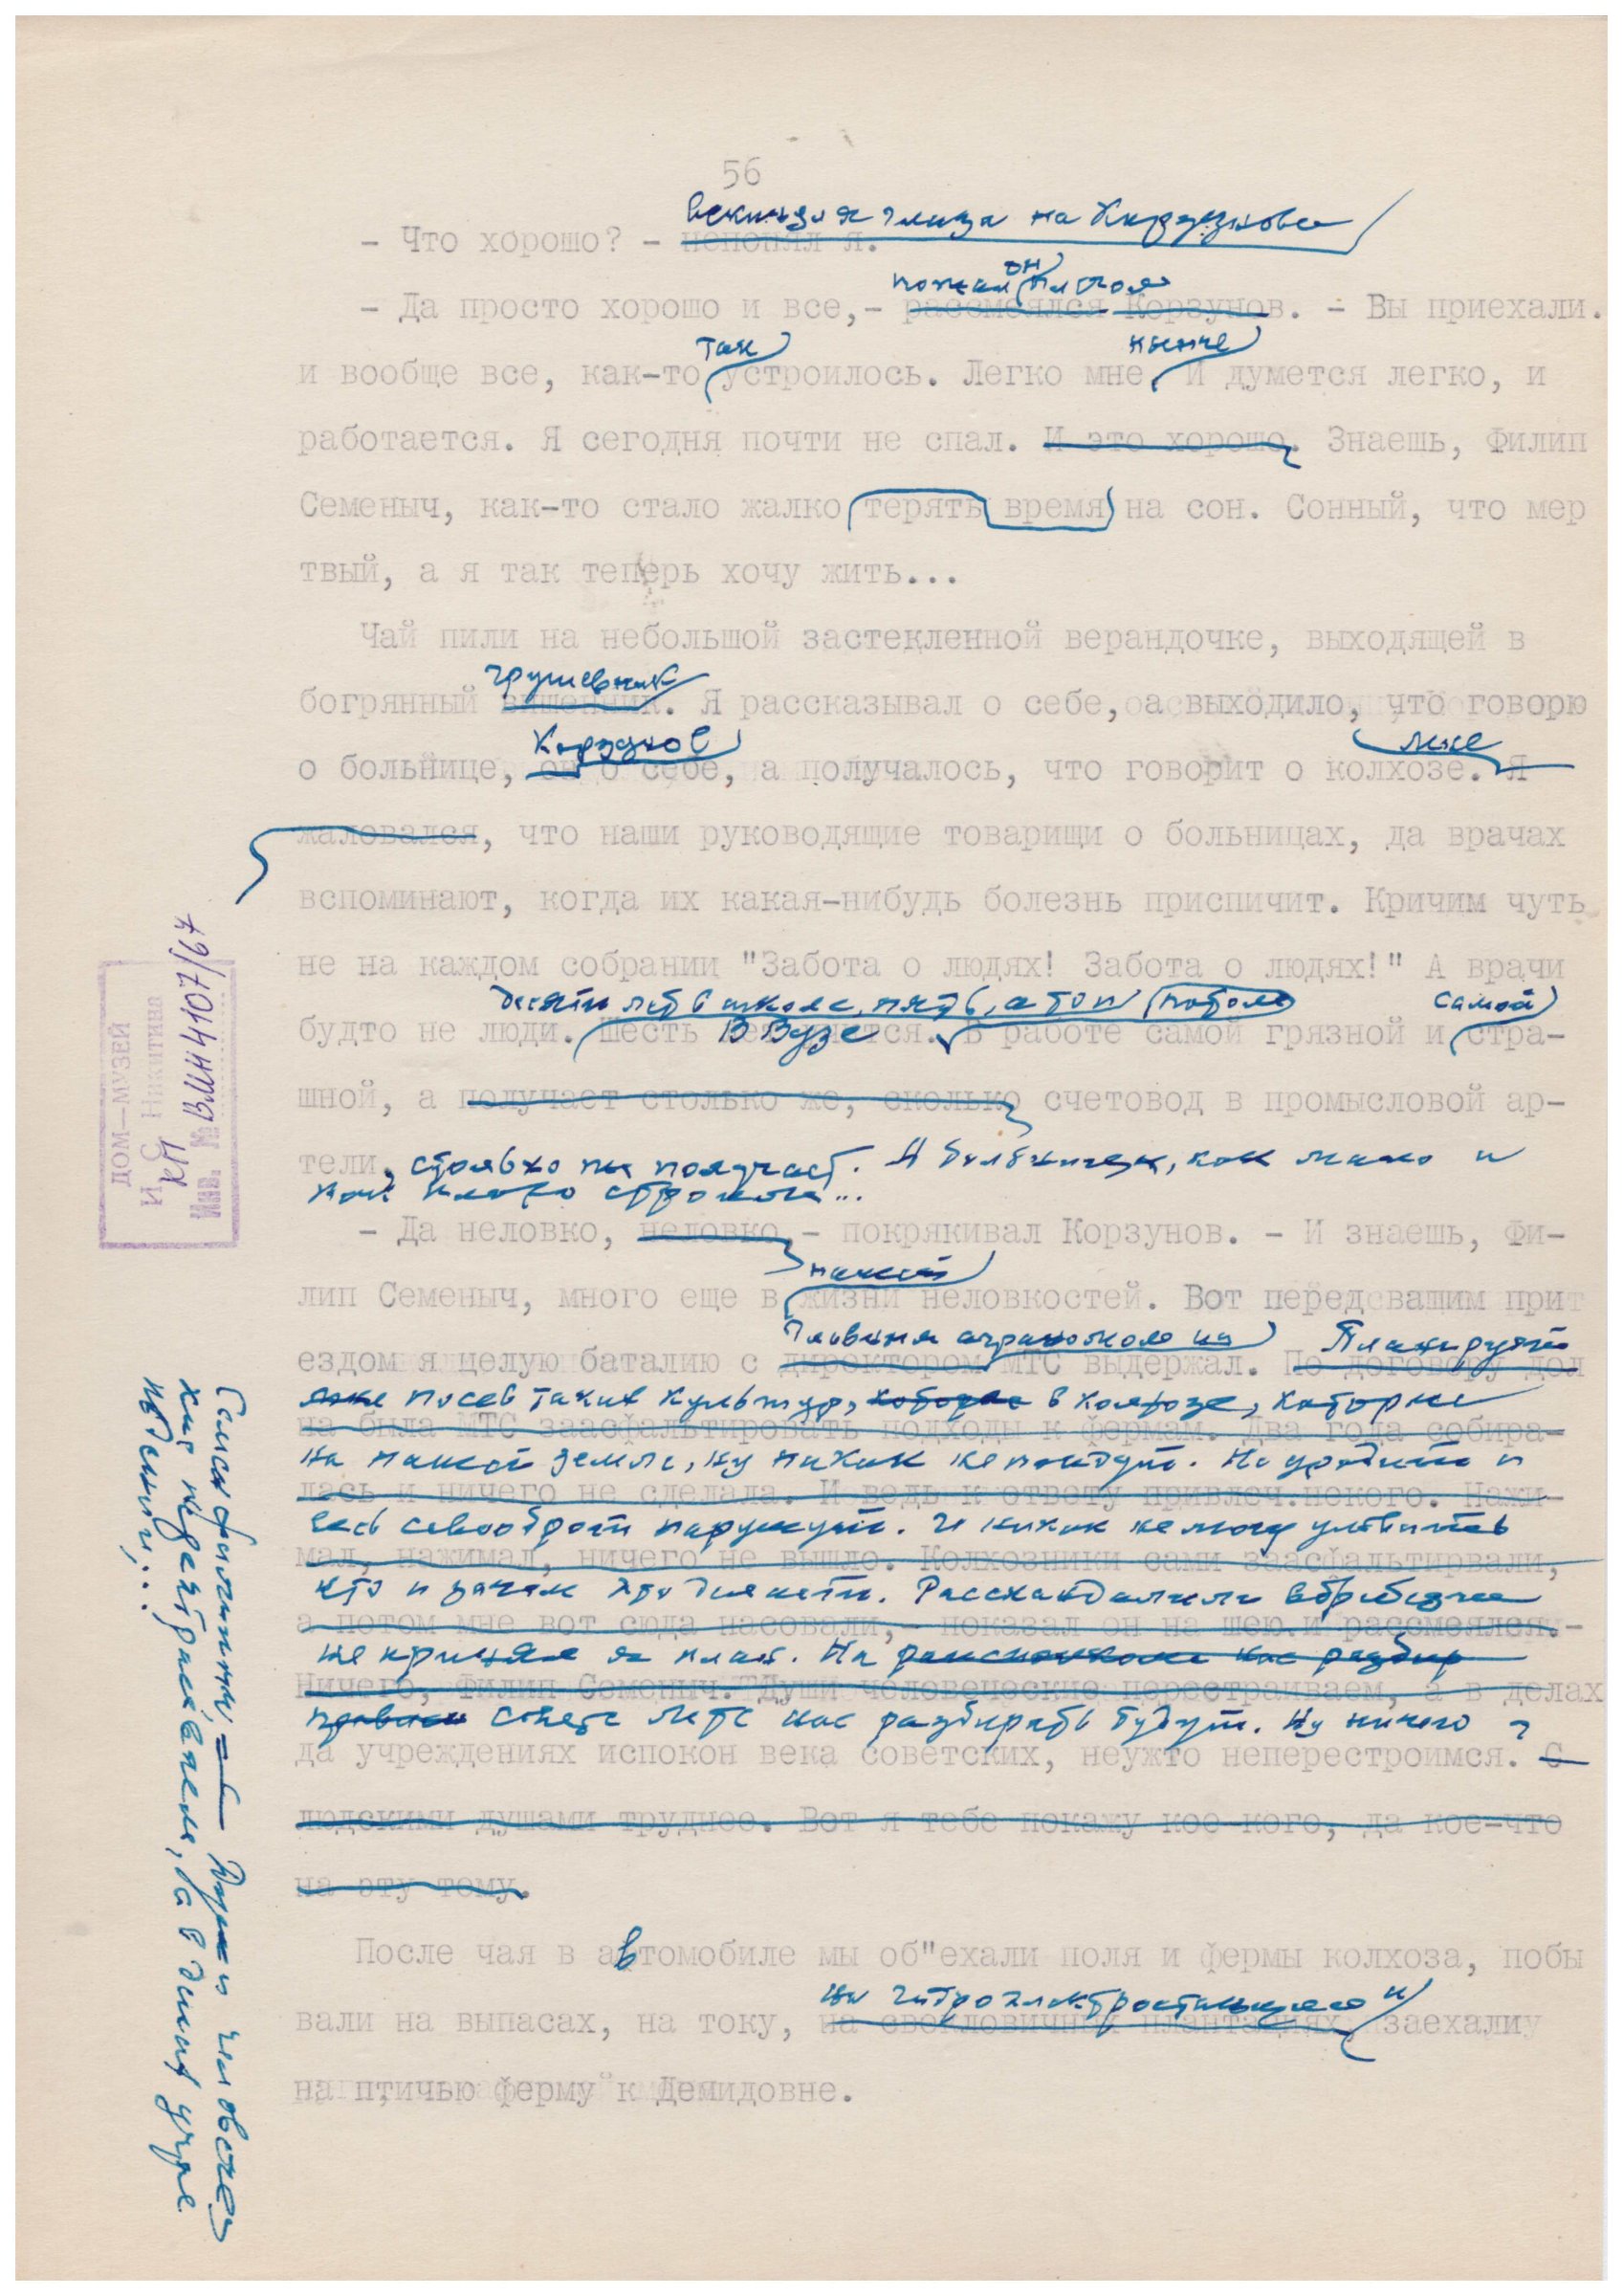 56
вскинул я глаза на Корзунова
- Что хорошо? - непонял я.
он
пожал плечом
- Да просто хорошо и все,- рассмеялся Корзунов. - Вы приехали.
так нынче
и вообще все, как-то устроилось. Легко мне, И думется легко, и
работается. Я сегодня почти не спал. И это хорошо. Знаешь, Филип
Семеныч, как-то стало жалко терять время на сон. Сонный, что мер
твый, а я так теперь хочу жить...
Чай пили на небольшой застекленной верандочке, выходящей в
грушевник
богрянный вишенник. Я рассказывал о себе, а выходило, что говорю
Корзунов мне
о больнице, он о себе, а получалось, что говорит о колхозе. Я
жаловался, что наши руководящие товарищи о больницах, да врачах
вспоминают, когда их какая-нибудь болезнь приспичит. Кричим чуть
не на каждом собрании "Забота о людях! Забота о людях!" А врачи
десять лет в школе, пять, а то и потом самой
будто не люди. Шесть в Вузе тся. В работе самой грязной и стра-
шной, а получает столько же, сколько счетовод в промысловой ар-
тели, столько и получает. А больницы, как мало и
как плохо строим...
- Да неловко, неловко,- покрякивал Корзунов. - И знаешь, Фи-
нашей
лип Семеныч, много еще в жизни неловкостей. Вот перед ващим при
главным агрономом из Планируют
ездом я целую баталию с директором МТС выдержал. По договору дол
мне посев таких культур, которые в колхозе, которые
на была МТС заасфальтировать подходы к фермам. Два года собира-
на нашей земле, ну никак не пойдут. Не уродит и
лась и ничего не сделала. И ведь к ответу привлеч.некого. Нажи-
весь севооборот нарушут. И никак не могу уловить
мал, нажимал, ничего не вышло. Колхозники сами заасфальтирвали,
кто и зачем это делает. Расскандалили вдребезги
а потом мне вот сюда насовали,- показал он на шею.и рассмеялся.-
не принял я план. На разб
Ничего, Филип Семеныч. Души человеческие перестраиваем, а в делах
совете МТС нас разбирать будут. Ну ничего
да учреждениях испокон века советских, неужто неперестроимся. С
людскими душами труднее. Вот я тебе покажу кое-кого, да кое-что
на эту тему.
После чая в автомобиле мы об"ехали поля и фермы колхоза, побы
на гидроэлектростанцию и
вали на выпасах, на току, на свекловичных плантациях, заехали
на птичью ферму к Демидовне.
ДОМ—МУЗЕЙ
И. С. Никитина
КП
Инв. № ВМН 4107/67
Души человечес
кие перестраиваем, а в делах учре